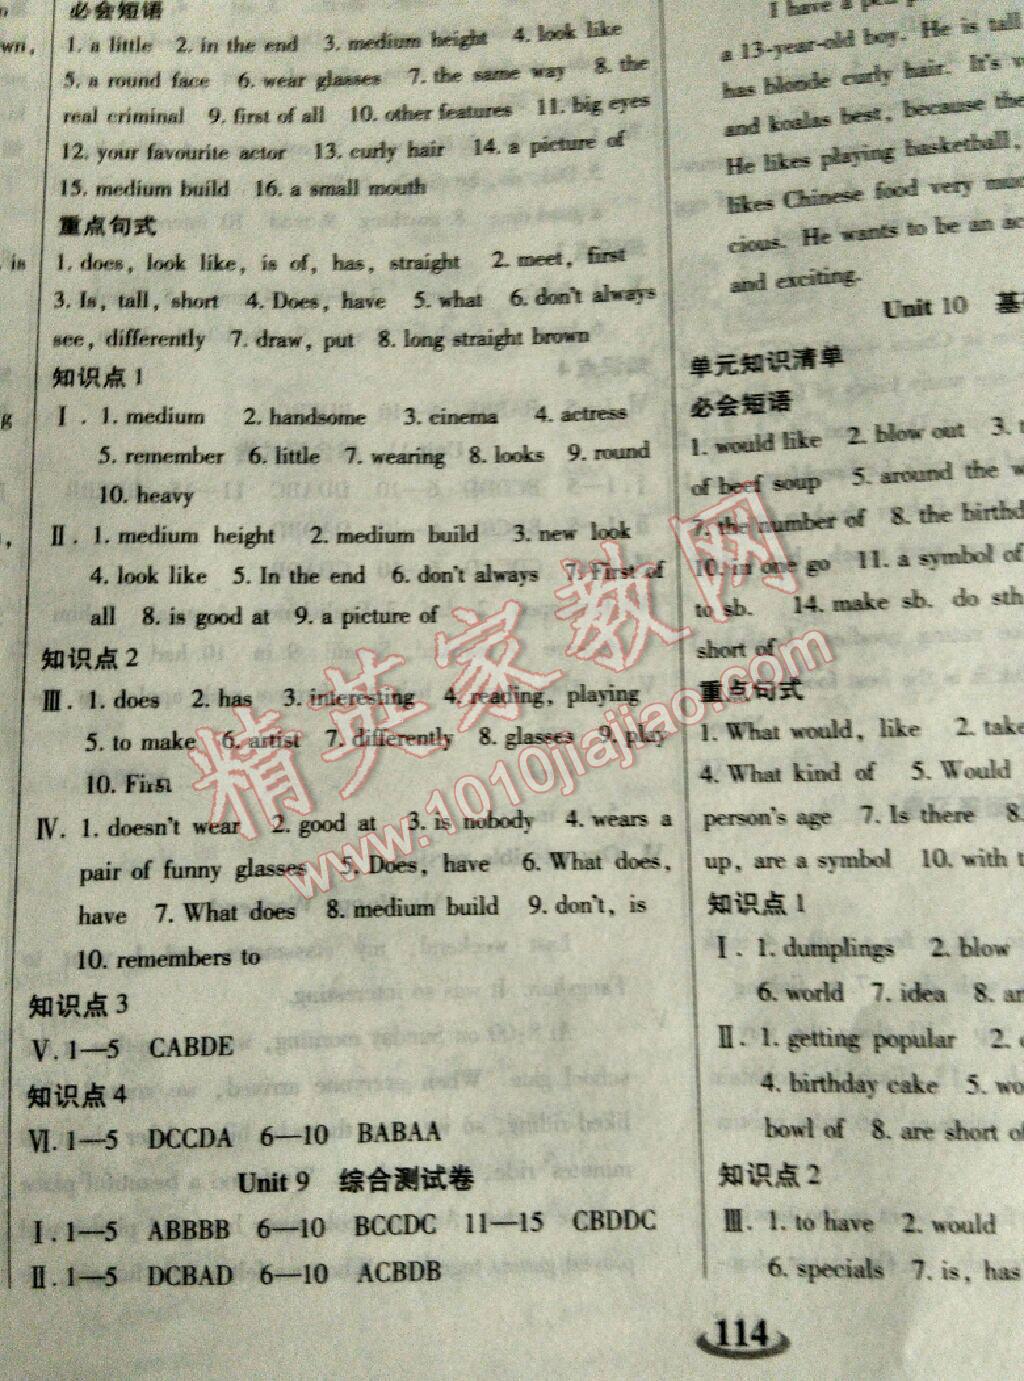 必会短语
1. a little 2. in the end 3. medium height 4. look like
5. a round face 6. wear glasses 7. the same way 8. the
real criminal 9. first of all 10. other features 11. big eyes
12. your favourite actor 13. curly hair 14. a picture of
15. medium build 16. a small mouth
重点句式
1. does, look like, is of, has, straight 2. meet, first
3. Is, tall, short 4. Does, have 5. what 6. don't always
see, differently 7. draw, put 8. long straight brown
知识点1
Ⅰ. 1. medium 2. handsome 3. cinema 4. actress
5. remember 6. little 7. wearing 8. looks 9. round
10. heavy
Ⅱ. 1. medium height 2. medium build 3. new look
4. look like 5. In the end 6. don't always 7. First of
all 8. is good at 9. a picture of
知识点2
Ⅲ. 1. does 2. has 3. interesting 4. reading, playing
5. to make 6. artist 7. differently 8. glasses 9. play
10. First
Ⅳ. 1. doesn't wear 2. good at 3. is nobody 4. wears a
pair of funny glasses 5. Does, have 6. What does,
have 7. What does 8. medium build 9. don't, is
10. remembers to
知识点3
Ⅴ. 1—5 CABDE
知识点4
Ⅵ. 1—5 DCCDA 6—10 BABAA
Unit 9 综合测试卷
Ⅰ. 1—5 ABBBB 6—10 BCCDC 11—15 CBDDC
Ⅱ. 1—5 DCBAD 6—10 ACBDB
I have a pen
a 13-year-old boy. He is tall
has blonde curly hair. It's
and koalas best, because the
He likes playing basketball,
likes Chinese food very
cious. He wants to be an
and exciting.
Unit 10
单元知识清单
必会短语
1. would like 2. blow out 3.
of beef soup 5. around the
7. the number of 8. the
10. in one go 11. a symbol of
to sb. 14. make sb. do sth
short of
重点句式
1. What would, like 2. take
4. What kind of 5. Would
person's age 7. Is there 8.
up, are a symbol 10. with
知识点1
Ⅰ. 1. dumplings 2. blow
6. world 7. idea 8.
Ⅱ. 1. getting popular 2.
4. birthday cake 5.
bowl of 8. are short of
知识点2
Ⅲ. 1. to have 2. would
6. specials 7. is, has
114
精英家教网
www.1010jiajiao.com